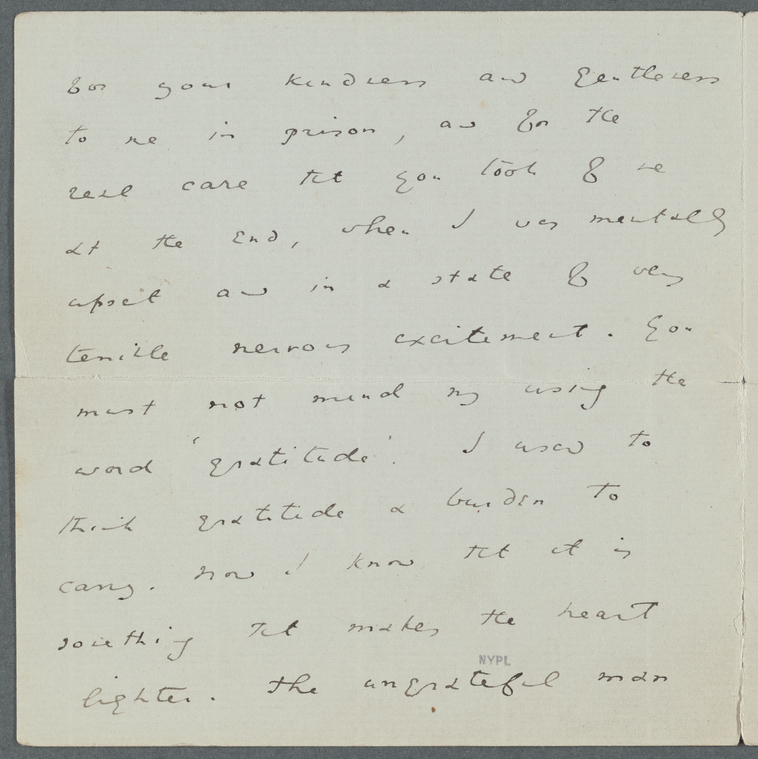 for your kindness and gentleness
to me in prison, and for the
real care that you took of me
at the end, when I was mentally
upset and in a state of very
terrible nervous excitement. You
must not mind my using the
word 'gratitude'. I used to
think gratitude a burden to
carry. Now I know that it is
something that makes the heart
lighter. The ungrateful man
NYPL